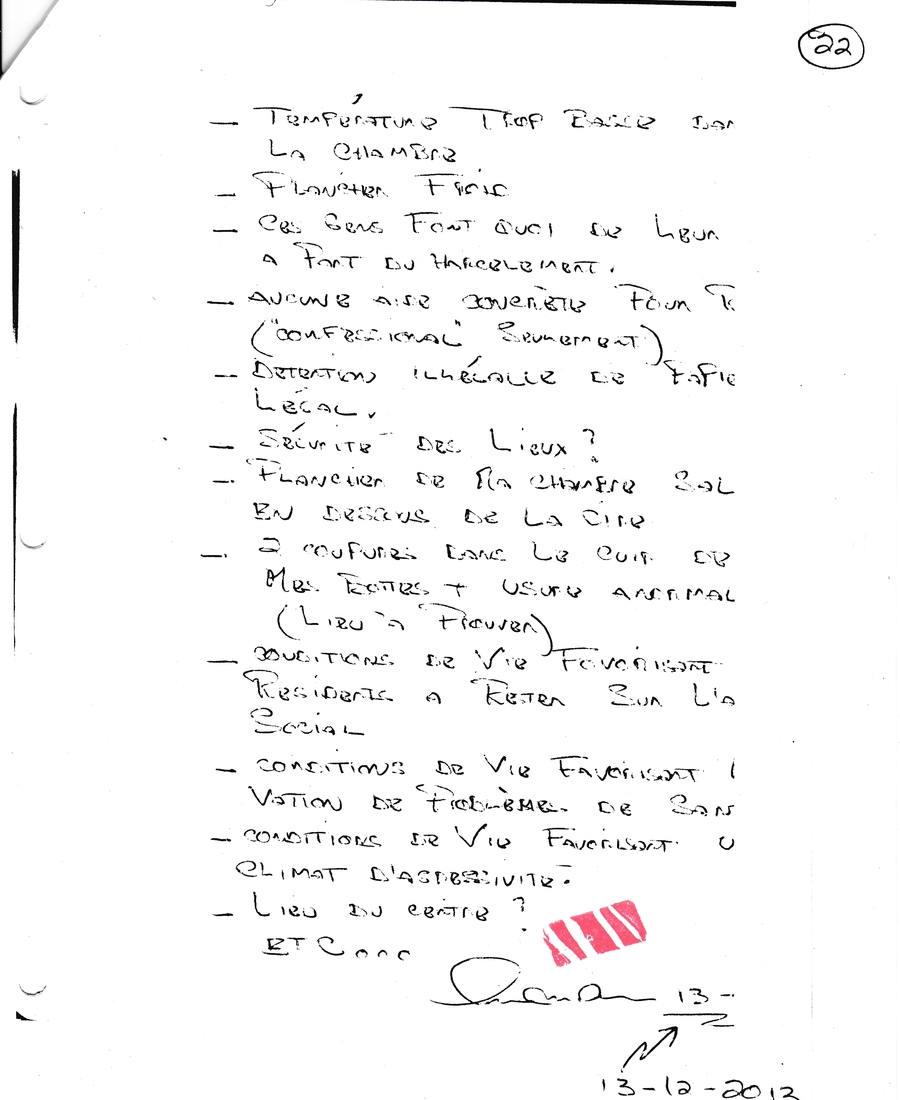 22
— TEMPÉRATURE TROP BASSE DAN
LA CHAMBRE
— PLANCHER FROID
— CES GENS FONT QUOI DE LEUR
A PART DU HARCELEMENT.
— AUCUNE AIDE CONCRÈTE POUR
("CONFESSIONAL" SEULEMENT)
— DETENTION ILLÉGALLE DE PAPIE
LÉGAL.
— SÉCURITÉ DES LIEUX ?
— PLANCHER DE MA CHAMBRE SAL
EN DESSOUS DE LA CIRE
— 2 COUPURES DANS LE CUIR DE
MES BOTTES + USURE ANORMAL
(LIEU À PROUVER)
— CONDITIONS DE VIE FAVORISANT
RESIDENTS A RESTER SUR L'A
SOCIAL
— CONDITIONS DE VIE FAVORISANT
VATION DE PROBLÈMES DE SAN
— CONDITIONS DE VIE FAVORISANT U
CLIMAT D'AGRESSIVITÉ.
— LIEU DU CENTRE ?
ETC...
13-
13-12-2012